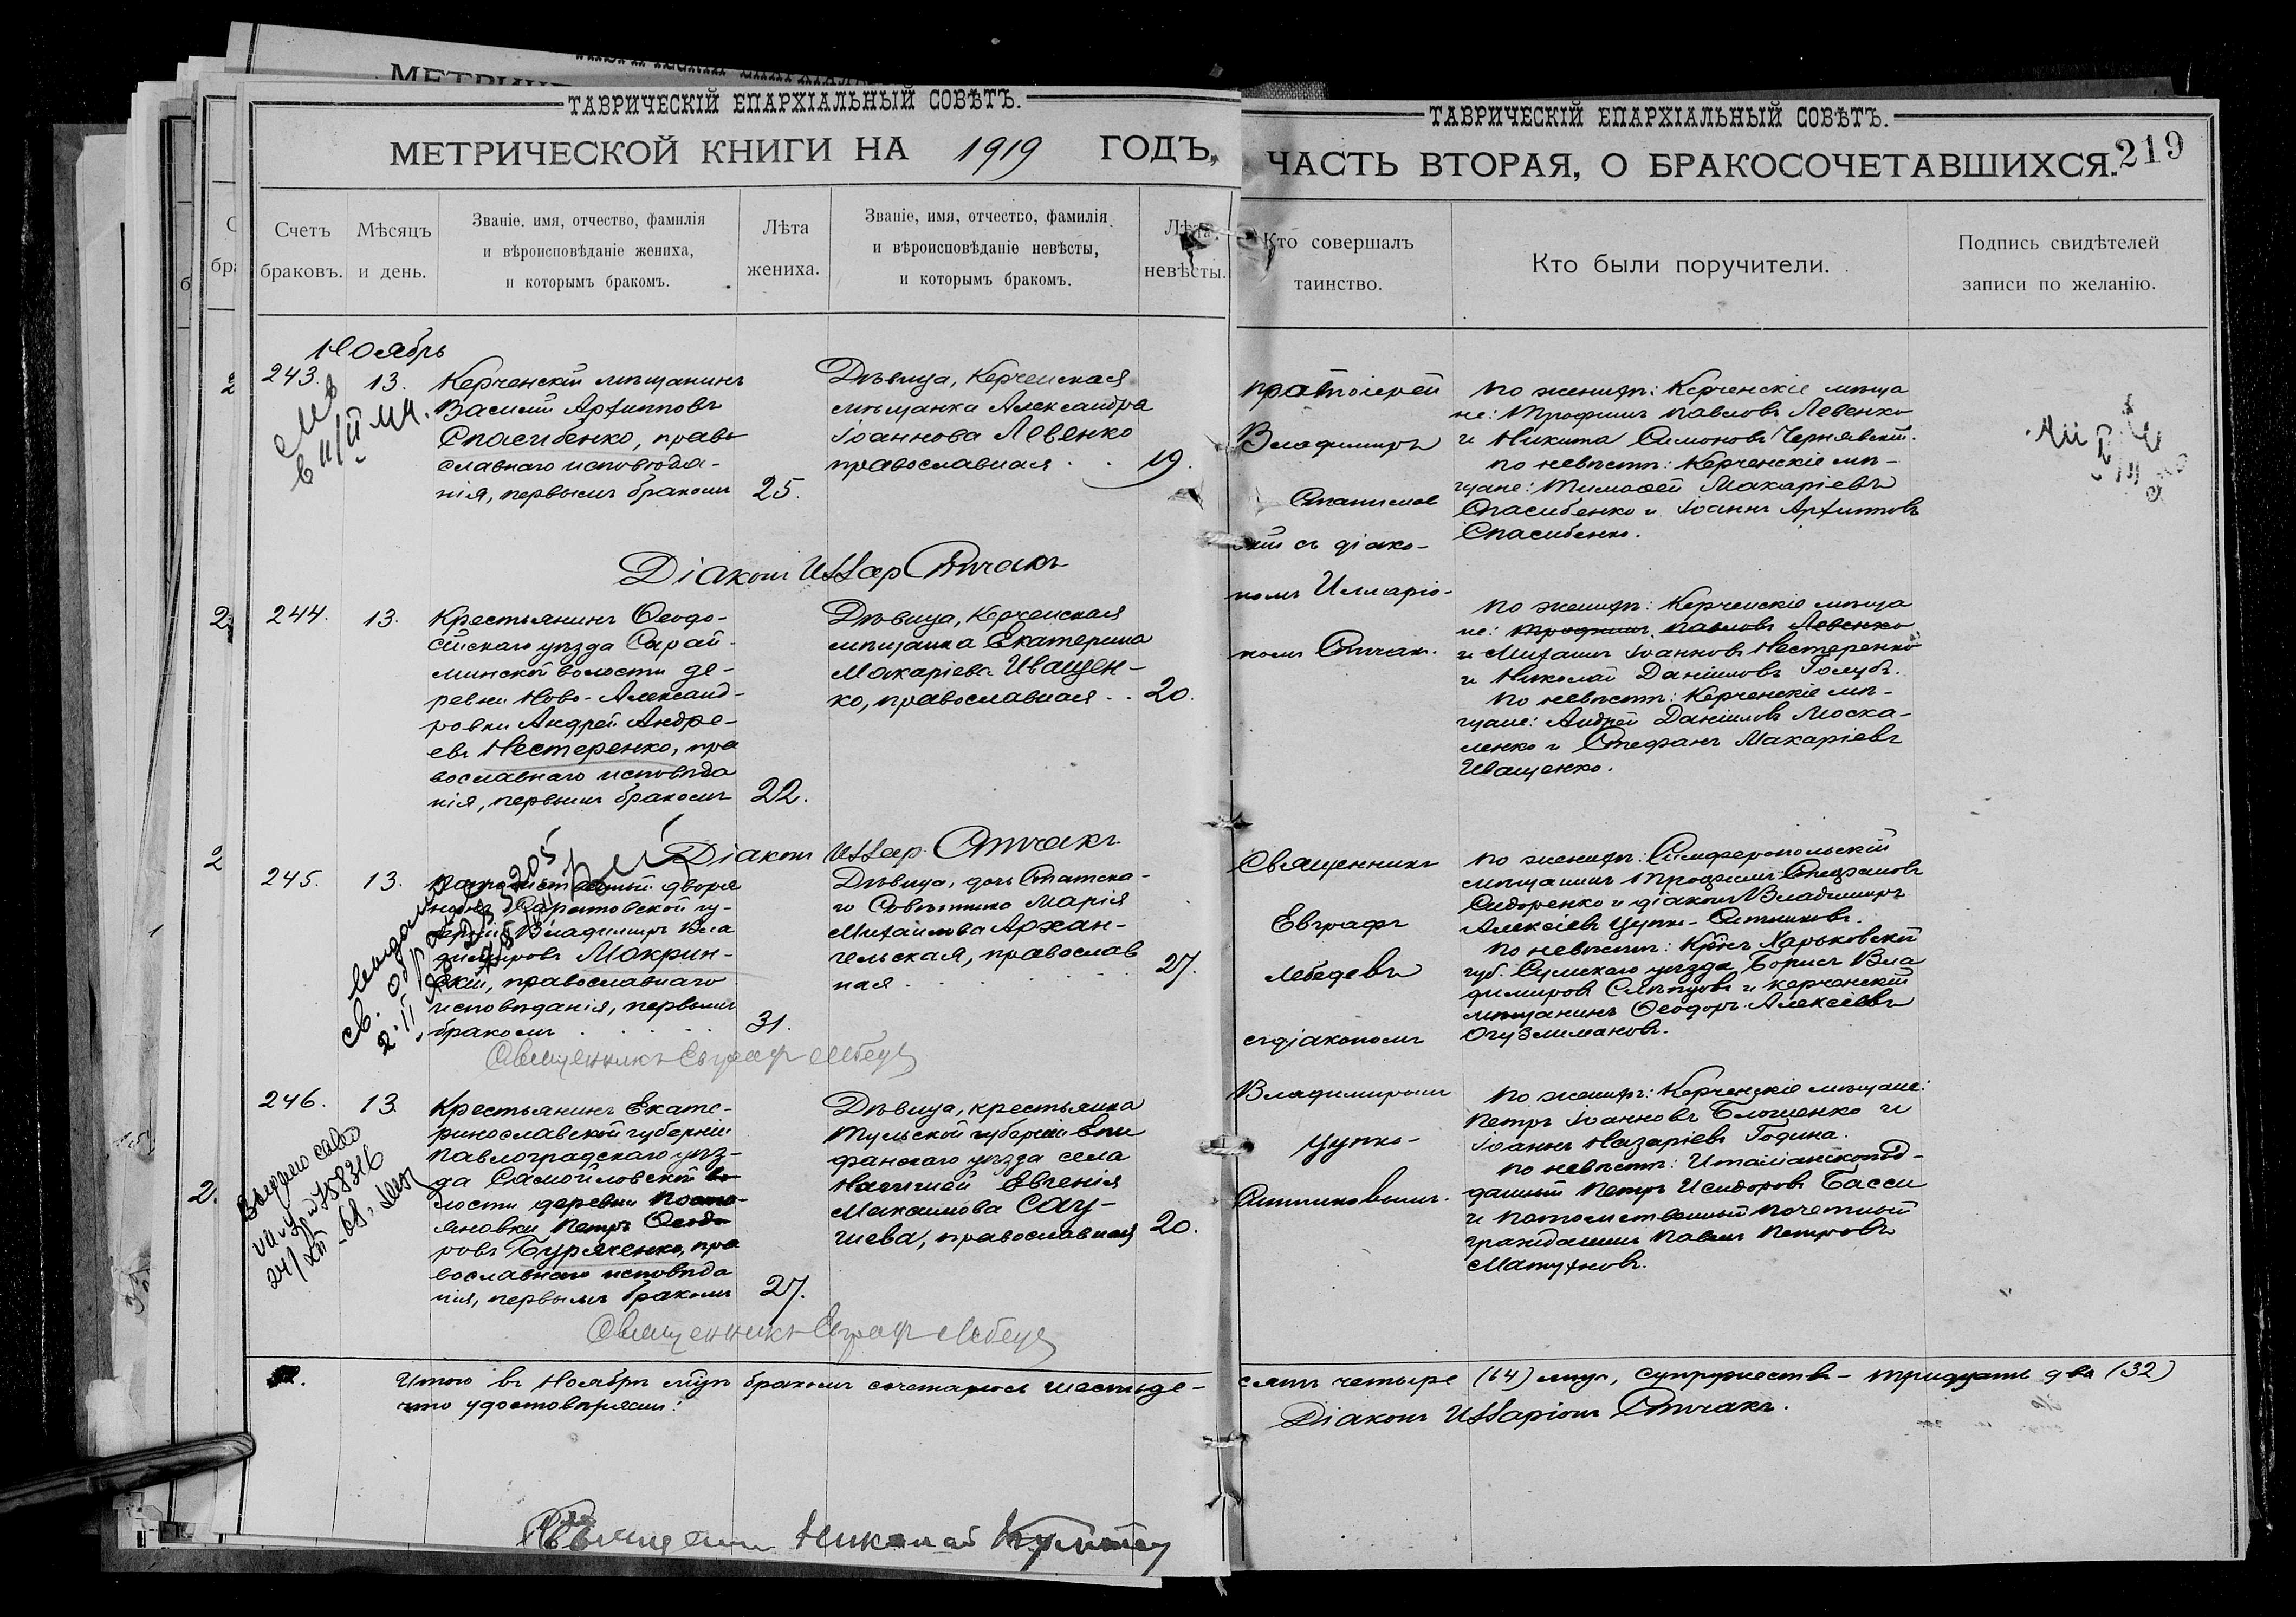 ТАВРИЧЕСКІЙ ЕПАРХІАЛЬНЫЙ СОВѢТЪ.
МЕТРИЧЕСКОЙ КНИГИ НА 1919 ГОДЪ,
Счетъ браковъ.
Мѣсяцъ и день.
Званіе, имя, отчество, фамилія
и вѣроисповѣданіе жениха,
и которымъ бракомъ.
Лѣта
жениха.
Званіе, имя, отчество, фамилія
и вѣроисповѣданіе невѣсты,
и которымъ бракомъ.
Лѣта
невѣсты.
Ноябрь
243.
13.
Керченскій мѣщанинъ
Василій Архипповъ
Спасибенко, право
славнаго исповѣда-
нія, первымъ бракомъ
25.
Дѣвица, Керченская
мѣщанка Александра
Іоаннова Левенко
православная
19.
Діаконъ Иллар Спичакъ
244.
13.
Крестьянинъ Ѳеодо-
сійскаго уѣзда Сарай-
минской волости де-
ревни Ново-Александ-
ровки Андрей Андре-
евъ Нестеренко, пра
вославнаго исповѣда
нія, первымъ бракомъ
22.
Дѣвица, Керченская
мѣщанка Екатерина
Макаріева Иващен-
ко, православная
20.
Діаконъ Иллар Спичакъ
245.
13.
Потомственный дворя
нинъ Саратовской гу-
берніи Владимиръ Вла
димировъ Мокрин-
скій, православнаго
исповѣданія, первымъ
бракомъ
31.
Дѣвица, дочь Статска-
го Совѣтника Марія
Михаилова Архан-
гельская, православ
ная
27.
Священникъ Евграф Лебеде
246.
13.
Крестьянинъ Екате-
ринославской губерніи
Павлоградскаго уѣз-
да Самойловской во
лости деревни
яновки Петръ Ѳеодо
ровъ Буряченко, пра
вославнаго исповѣда
нія, первымъ бракомъ
27.
Дѣвица, крестьянка
Тульской губерніи Епи
фанскаго уѣзда села
Евгенія
Максимова Сау-
шева, православная
20.
Священникъ Евграф Лебеде
Итого въ Ноябрѣ м-цѣ бракомъ сочеталось шестьде-
что удостовѣряемъ:
Николай
ТАВРИЧЕСКІЙ ЕПАРХІАЛЬНЫЙ СОВѢТЪ.
ЧАСТЬ ВТОРАЯ, О БРАКОСОЧЕТАВШИХСЯ.
219
Кто совершалъ
таинство.
Кто были поручители.
Подпись свидѣтелей
записи по желанію.
протоіерей
Владимиръ
Станислав
скій съ діако-
номъ Илларіо-
номъ Спичак.
По женихѣ: Керченскіе мѣща
не: Трофимъ Павловъ Левенко
и Никита Симоновъ Чернявскій.
По невѣстѣ: Керченскіе мѣ-
щане: Тимофей Макаріевъ
Спасибенко и Іоаннъ Архипповъ
Спасибенко.
По женихѣ: Керченскіе мѣща
не: Трофимъ Павловъ Левенко
и Михаилъ Іоанновъ Нестеренко
и Николай Даніиловъ Голубъ.
По невѣстѣ: Керченскіе мѣ-
щане: Андрей Даніиловъ Моска-
ленко и Стефанъ Макаріевъ
Иващенко.
Священникъ
Евграфъ
Лебедевъ
съ діакономъ
Владимиромъ
Цупко-
Ситниковымъ.
По женихѣ: Симферопольскій
мѣщанинъ Трофимъ Стефановъ
Сидоренко и діаконъ Владимиръ
Алексіевъ Цупко-Ситниковъ.
По невѣстѣ: Кр-нъ Харьковской
губ. Сумскаго уѣзда Борисъ Вла
димировъ Слѣпцовъ и Керченскій
мѣщанинъ Ѳеодоръ Алексіевъ
Огузлимановъ.
По женихѣ: Керченскіе мѣщане:
Петръ Іоанновъ Блошенко и
Іоаннъ Назаріевъ Година.
По невѣстѣ: Итальянскопод-
данный Петръ Исидоровъ Басси
и потомственный почетный
гражданинъ Павелъ Петровъ
Матухновъ.
сятъ четыре (64) лицъ, супружествъ - тридцать два (32)
Діаконъ Илларіонъ Спичакъ.